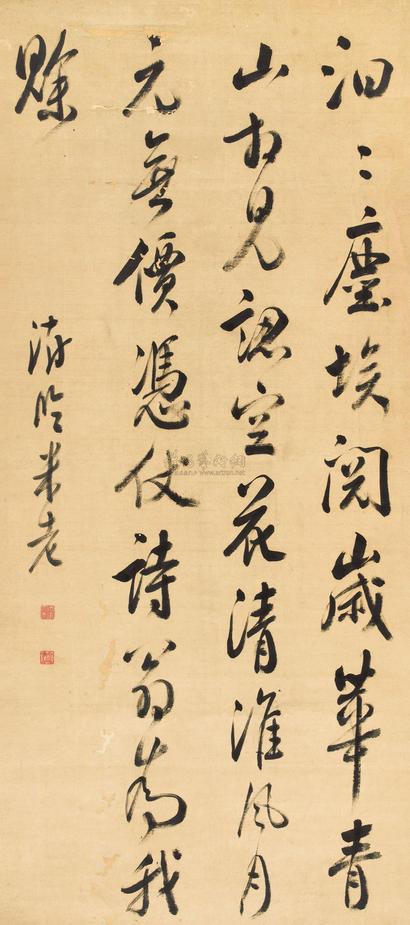 汩〻塵埃閱歲華青
山見認空花清淮風月
元無價憑仗詩翁為我
賒
臨米老